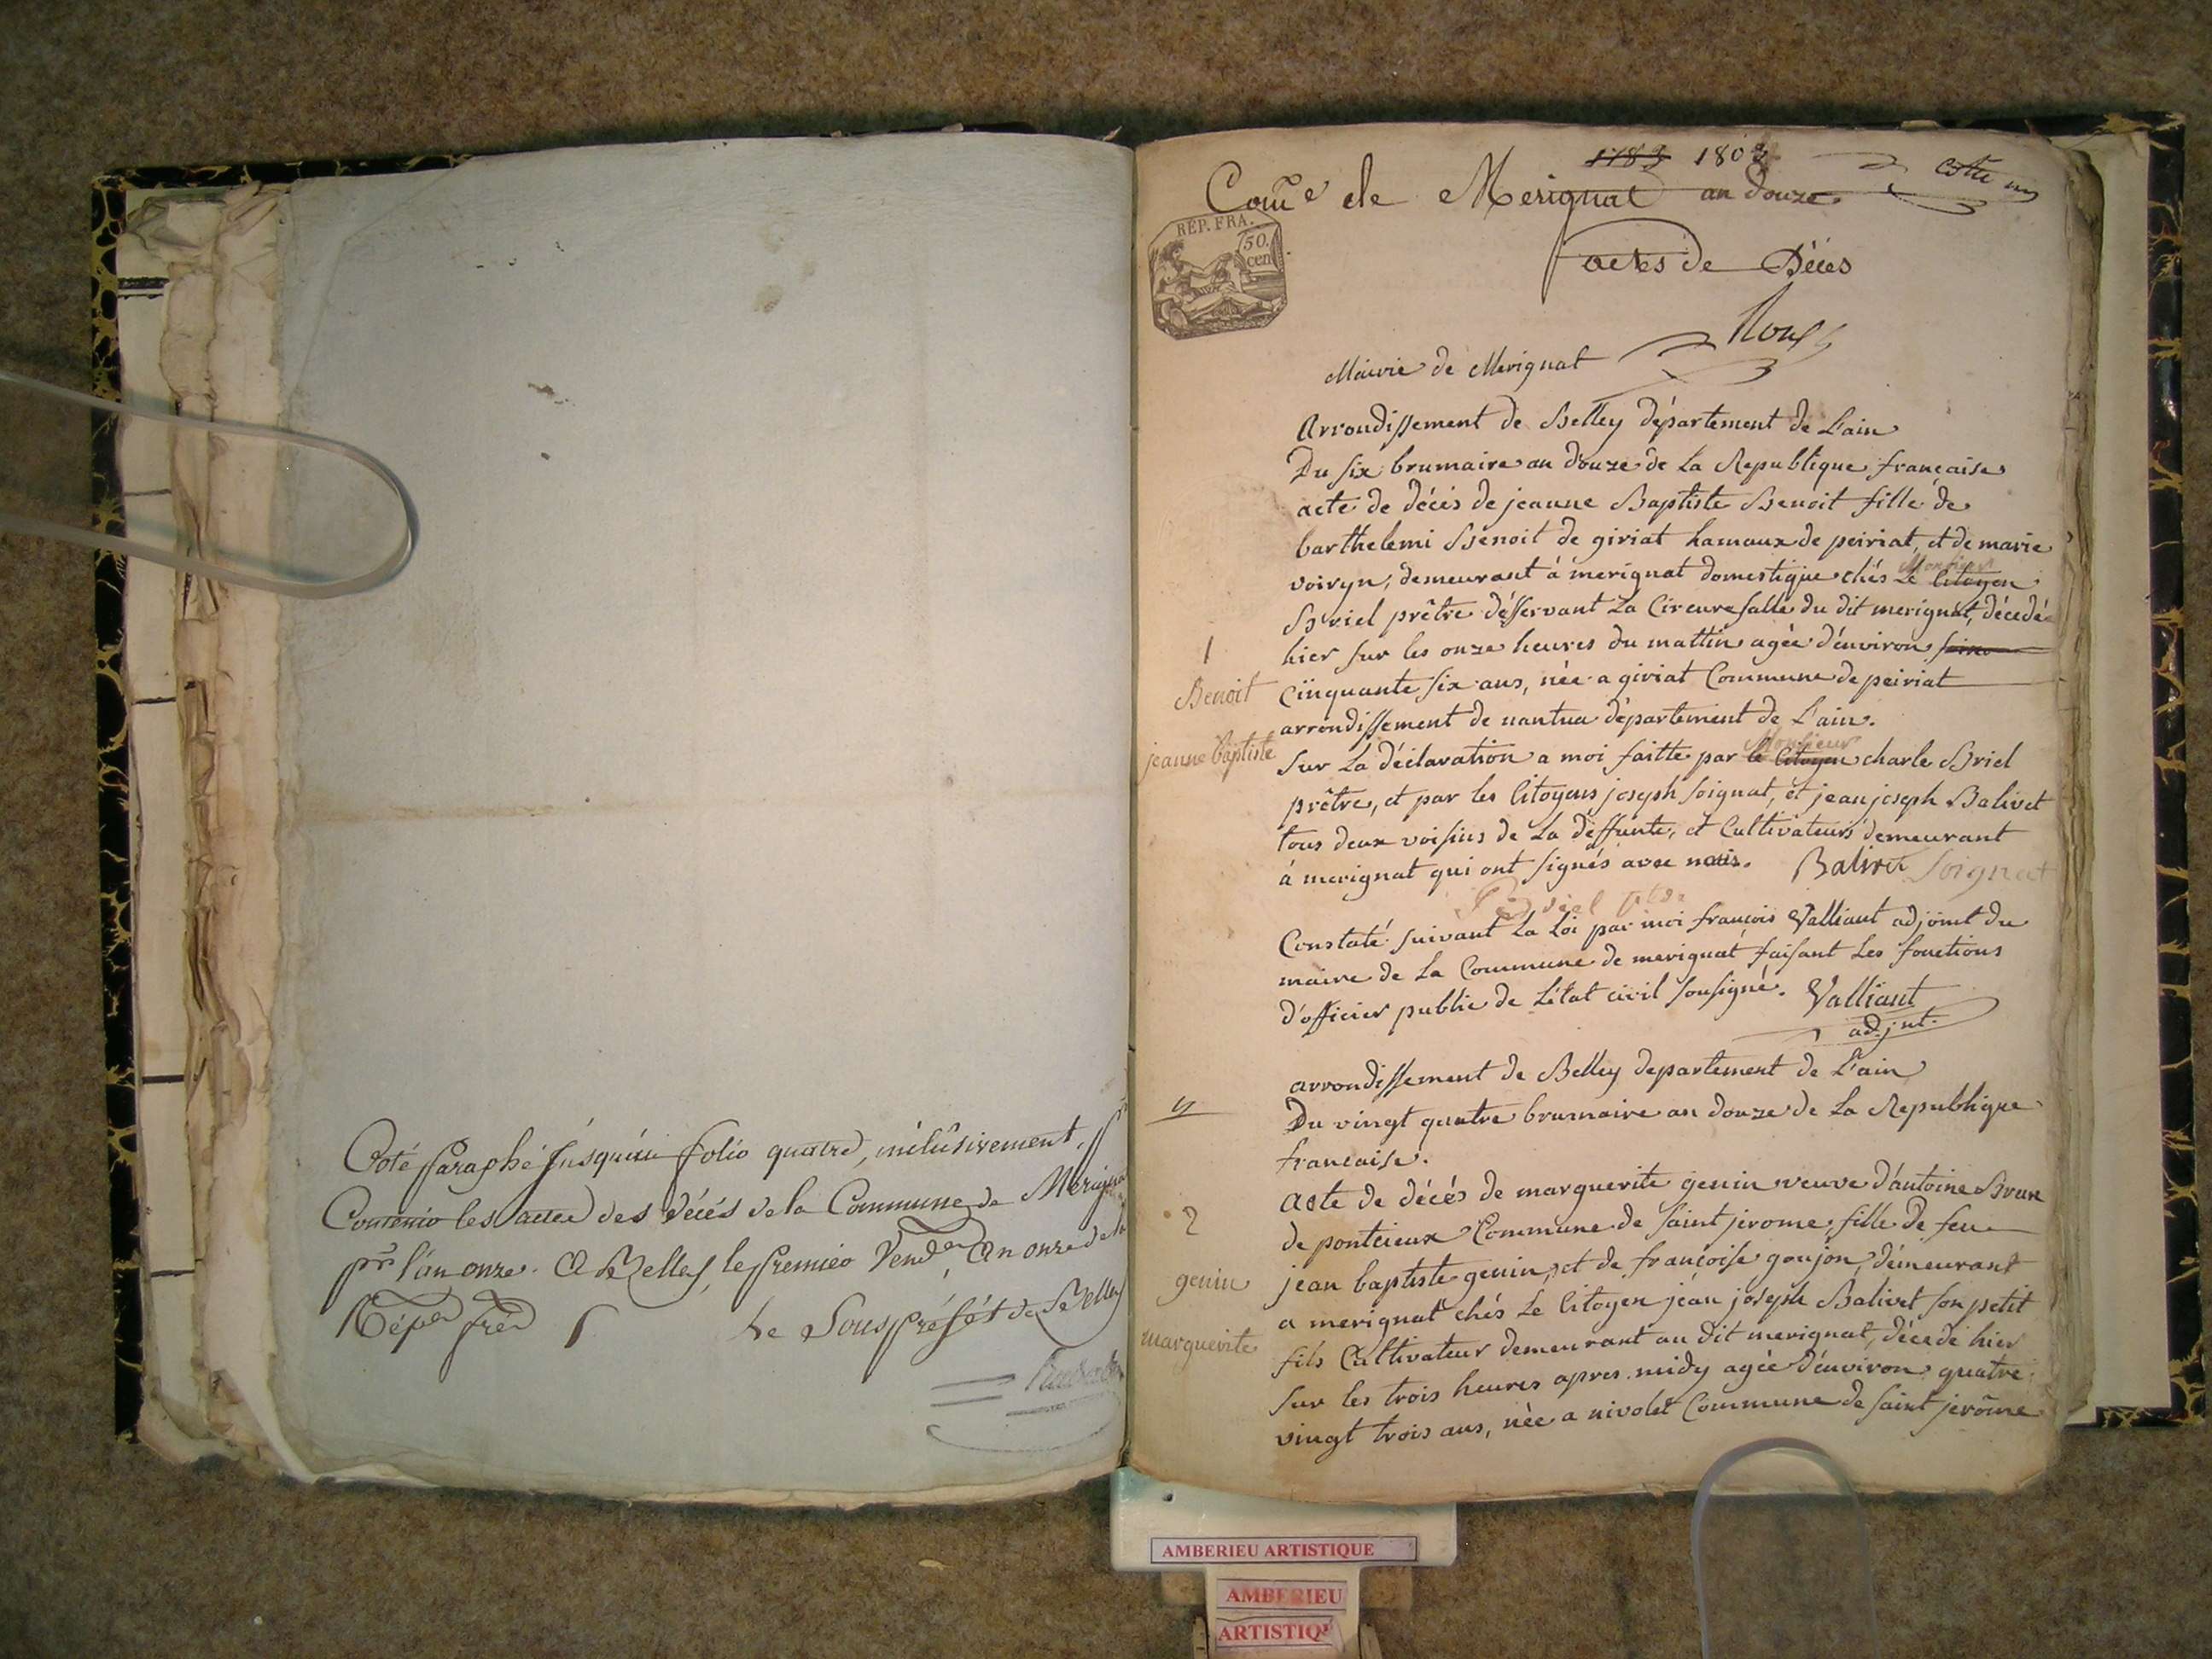 Coté Paraphé Jusqu'au folio quatre, inclusivement,
Contenir les actes des décés de la Commune de Merignat
pr l'an onze. A Belley, le premier Vendre An onze de la
Répue frse
Le Souspréfét de Belley
1783 1803
Come de Merignat an douze
Cotte un
REP. FRA.
50. cen
actes de Décès
Roux
Mairie de Merignat
Arrondissement de Belley département de L'ain
Du six brumaire an douze de la Republique francaise
acte de décés de jeanne Baptiste Benoit fille de
barthelemi Benoit de giriat hamaux de peiriat, et de marie
voiryn, demeurant à merignat domestique chés Le Citoyen
Monsieur
Briel prêtre désservant La Circuresalle du dit merignat, décedé
hier sur les onze heures du mattin agée d'environ
1
Benoit
jeanne baptiste
cinquante six ans, née a giriat Commune de peiriat
arrondissement de nantua département de L'ain.
Monsieur
Sur La déclaration a moi faitte par le Citoyen charle Briel
prêtre, et par les Citoyens joseph soignat, et jean joseph Balivet
tous deux voisins de La déffunte, et Cultivateurs demeurant
à merignat qui ont signés avec nous. Balivet Soignat
Briel ptre
Constaté suivant La Loi par moi françois Valliant adjoint du
maire de La Commune de merignat faisant Les fonctions
d'officier public de L'état civil sousigné. Valliant
adjnt.
arrondissement de Belley departement de L'ain
Du vingt quatre brumaire an douze de La Republique
francaise.
2
genin
marguerite
acte de décés de marguerite genin veuve d'antoine Brun
de pontcieux Commune de saint jerome, fille de feu
jean baptiste genin, et de françoise goujon, démeurant
a merignat chés Le Citoyen jean joseph Balivet son petit
fils Cultivateur demeurant au dit merignat, décedé hier
sur les trois heures apres midy agée d'environ quatre
vingt trois ans, née a nivolet Commune de saint jerôme
AMBERIEU ARTISTIQUE
AMBERIEU
ARTISTIQU